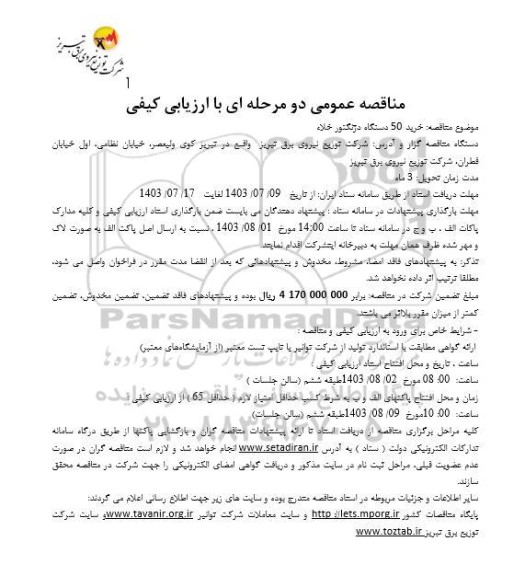 شرکت توزیع نیروی برق تبریز
1
مناقصه عمومی دو مرحله ای با ارزیابی کیفی
موضوع مناقصه: خرید 50 دستگاه دژنگتور خلاء
دستگاه مناقصه گزار و آدرس: شرکت توزیع نیروی برق تبریز واقع در تبریز کوی ولیعصر، خیابان نظامی، اول خیابان
قطران، شرکت توزیع نیروی برق تبریز
مدت زمان تحویل: 3 ماه
مهلت دریافت اسناد از طریق سامانه ستاد ایران: از تاریخ 09/ 07/ 1403 لغایت 17/ 07/ 1403
مهلت بارگذاری پیشنهادات در سامانه ستاد : پیشنهاد دهندگان می بایست ضمن بارگذاری اسناد ارزیابی کیفی و کلیه مدارک
پاکات الف ، ب و ج در سامانه ستاد تا ساعت 14:00 مورخ 01/ 08/ 1403 ، نسبت به ارسال اصل پاکت الف به صورت لاک
و مهر شده ظرف همان مهلت به دبیرخانه اینشرکت اقدام نمایند.
تذکر: به پیشنهادهای فاقد امضا، مشروط، مخدوش و پیشنهادهائی که بعد از انقضا مدت مقرر در فراخوان واصل می شود،
مطلقا ترتیب اثر داده نخواهد شد.
مبلغ تضمین شرکت در مناقصه: برابر 000 000 170 4 ریال بوده و پیشنهادهای فاقد تضمین، تضمین مخدوش، تضمین
کمتر از میزان مقرر بلااثر می باشند.
– شرایط خاص برای ورود به ارزیابی کیفی و مناقصه :
ارائه گواهی مطابقت با استاندارد تولید از شرکت توانیر یا تایپ تست معتبر (از آزمایشگاه‌های معتبر)
ساعت ، تاریخ و محل افتتاح اسناد ارزیابی کیفی :
ساعت: 00: 08 مورخ 02/ 08/ 1403طبقه ششم (سالن جلسات )
زمان و محل افتتاح پاکتهای الف و ب به شرط کسب حداقل امتیاز لازم ( حداقل 65 ) از ارزیابی کیفی
ساعت: 00: 10مورخ 09/ 08/ 1403طبقه ششم (سالن جلسات)
کلیه مراحل برگزاری مناقصه از دریافت اسناد تا ارائه پیشنهادات مناقصه گران و بازگشایی پاکتها از طریق درگاه سامانه
تدارکات الکترونیکی دولت ( ستاد ) به آدرس www.setadiran.ir انجام خواهد شد و لازم است مناقصه گران در صورت
عدم عضویت قبلی، مراحل ثبت نام در سایت مذکور و دریافت گواهی امضای الکترونیکی را جهت شرکت در مناقصه محقق
سازند.
سایر اطلاعات و جزئیات مربوطه در اسناد مناقصه مندرج بوده و سایت های زیر جهت اطلاع رسانی اعلام می گردند:
پایگاه مناقصات کشور http ://iets.mporg.ir و سایت معاملات شرکت توانیر www.tavanir.org.irو سایت شرکت
توزیع برق تبریز www.toztab.ir
ParsNamadData